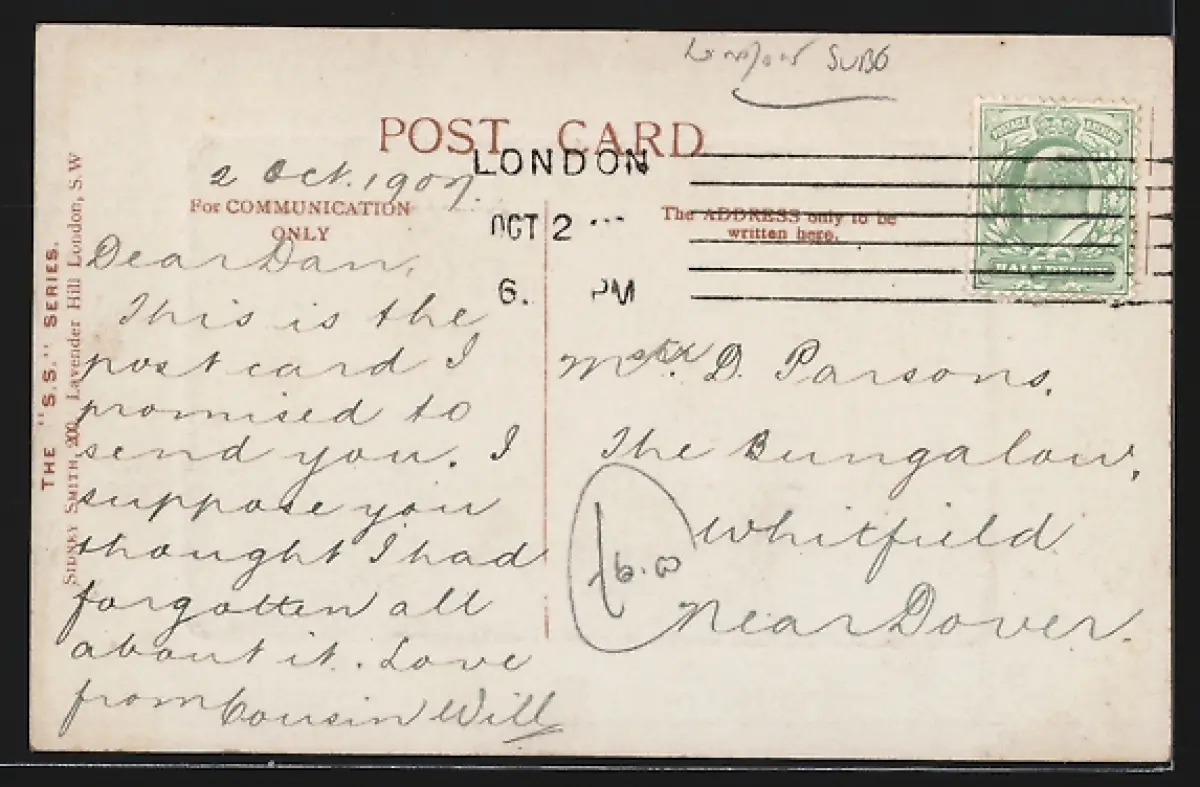 London SUBB
POST CARD
LONDON
OCT 2
6. PM
POSTAGE
HALF PENNY
2 Oct. 1907.
For COMMUNICATION
ONLY
The ADDRESS only to be
written here.
THE "S.S." SERIES.
SIDNEY SMITH, 200, Lavender Hill London, S.W
Dear Dan,
This is the
post card I
promised to
send you. I
suppose you
thought I had
forgotten all
about it. Love
from Cousin Will
Mstr. D. Parsons,
The Bungalow,
Whitfield
Near Dover.